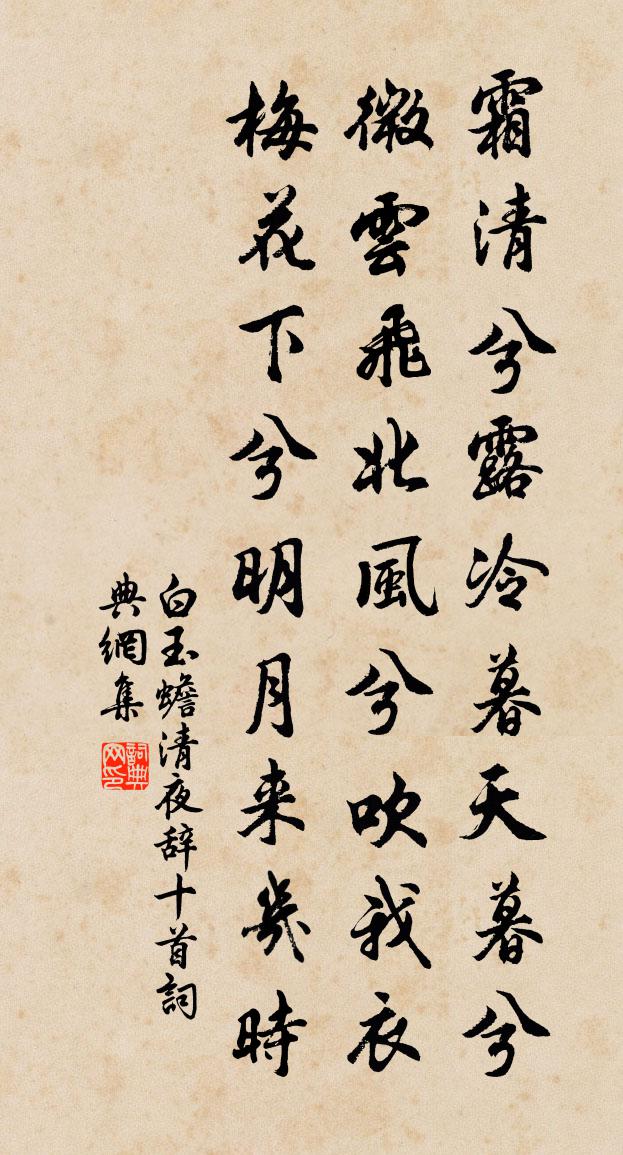 霜清兮露冷暮天暮兮
微雲飛北風兮吹我衣
梅花下兮明月来幾時
白玉蟾清夜辞十首詞
典網集
詞典
网印